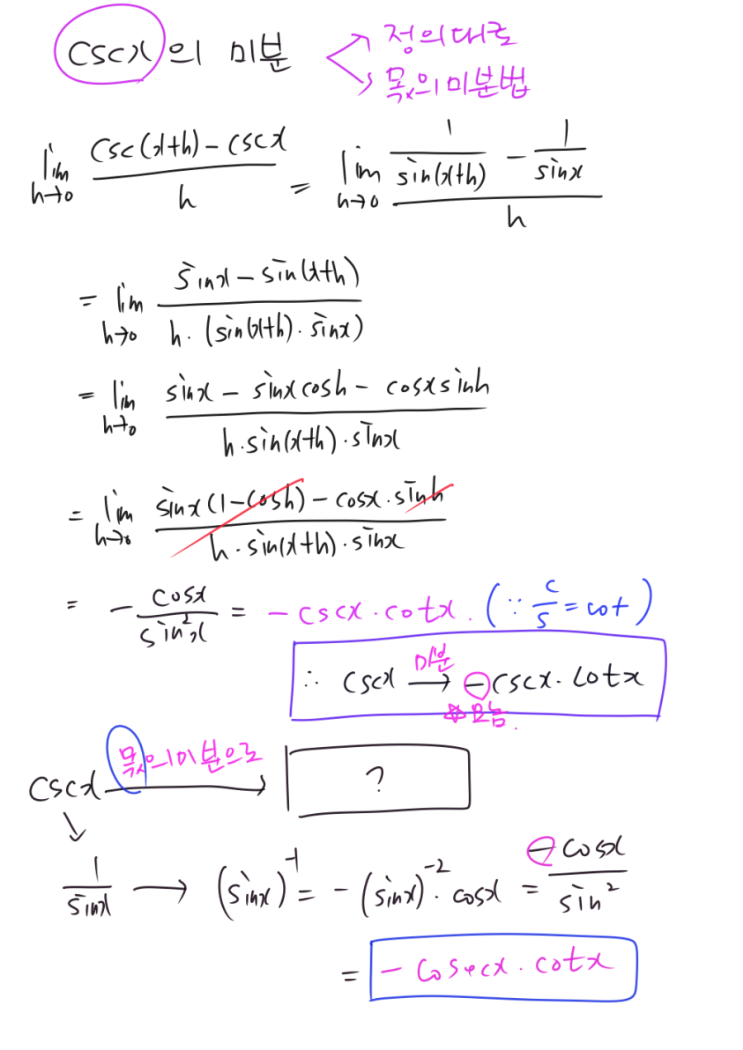 cscx의 미분 < 정의대로
몫의미분법
lim h→0 (csc(x+h) - cscx)/h = lim h→0 (1/sin(x+h) - 1/sinx)/h
= lim h→0 (sinx - sin(x+h))/(h·(sin(x+h)·sinx))
= lim h→0 (sinx - sinxcosh - cosxsinh)/(h·sin(x+h)·sinx)
= lim h→0 (sinx(1-cosh) - cosx·sinh)/(h·sin(x+h)·sinx)
= - cosx/sin²x = -cscx·cotx. (∵ c/s = cot)
∴ cscx 미분→ -cscx·cotx
cscx 몫의미분으로→ ?
↓
1/sinx → (sinx)⁻¹ = -(sinx)⁻²·cosx = -cosx/sin²
= -cosecx·cotx